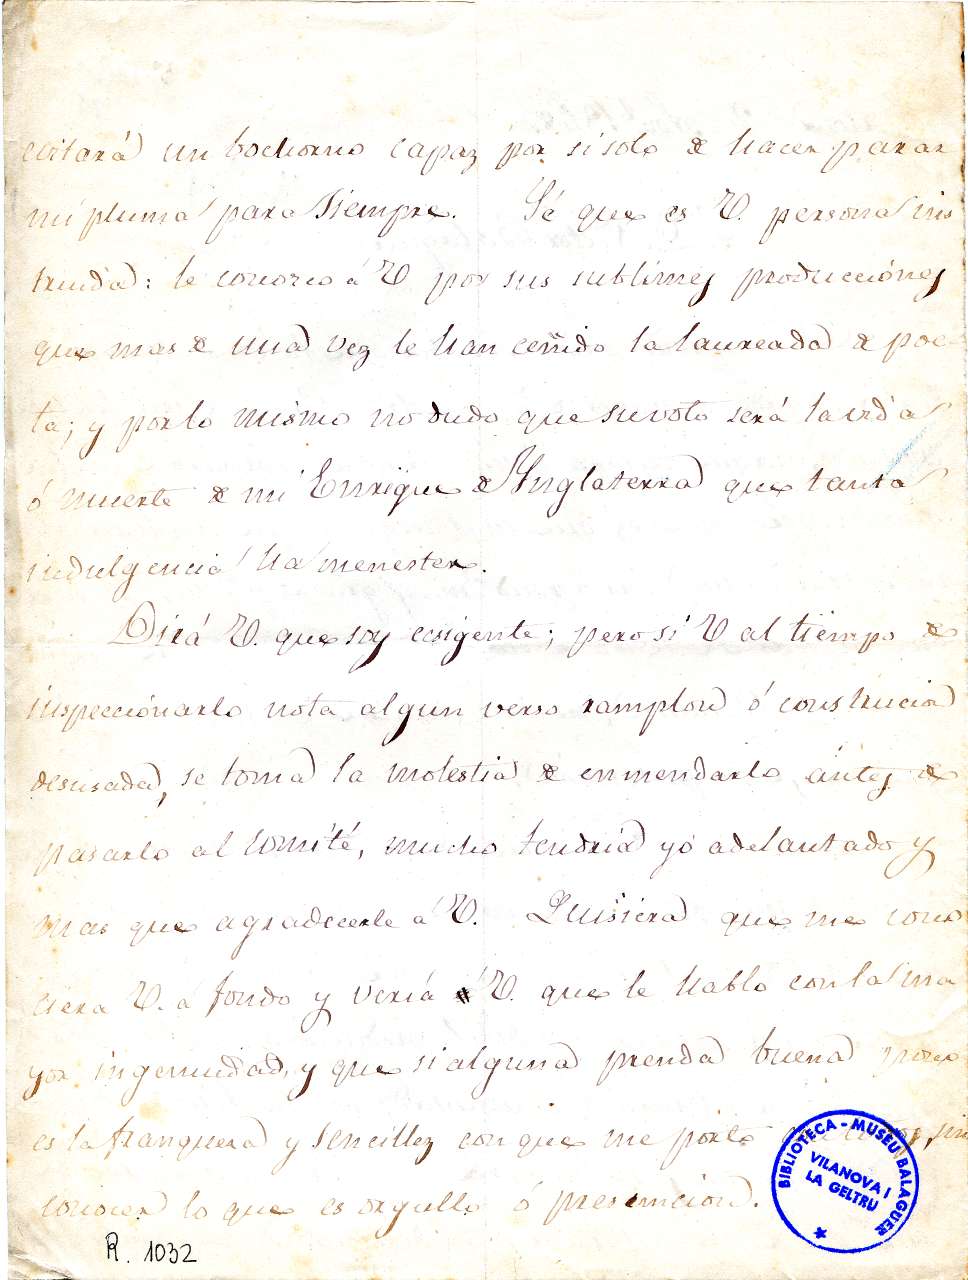 evitará un bochorno capaz por si solo de hacer parar
mi pluma para siempre. Sé que es V. persona ins
truida: le conozco á V por sus sublimes producciónes
que mas de una vez le han ceñido la laureada de poe-
ta; y por lo mismo no dudo que su voto será la vida
ó muerte de mi Enrique de Inglaterra que tanta
indulgencia ha menester.
Dirá V. que soy ecsigente; pero si V al tiempo de
inspecciónarlo nota algun verso ramplon ó construcion
desusada, se toma la molestia de enmendarlo ántes de
pasarlo al comité, mucho tendria yó adelantado y
mas que agradecerle á V. Quisiera que me cono
ciera V. á fondo y veriá V. que le hablo con la ma
yor ingenuidad, y que si alguna prenda buena poseo
es la franqueza y sencillez con que me porto sin
conocer lo que es orgullo ó presuncion.
R. 1032
BIBLIOTECA - MUSEU BALAGUER
VILANOVA I
LA GELTRU